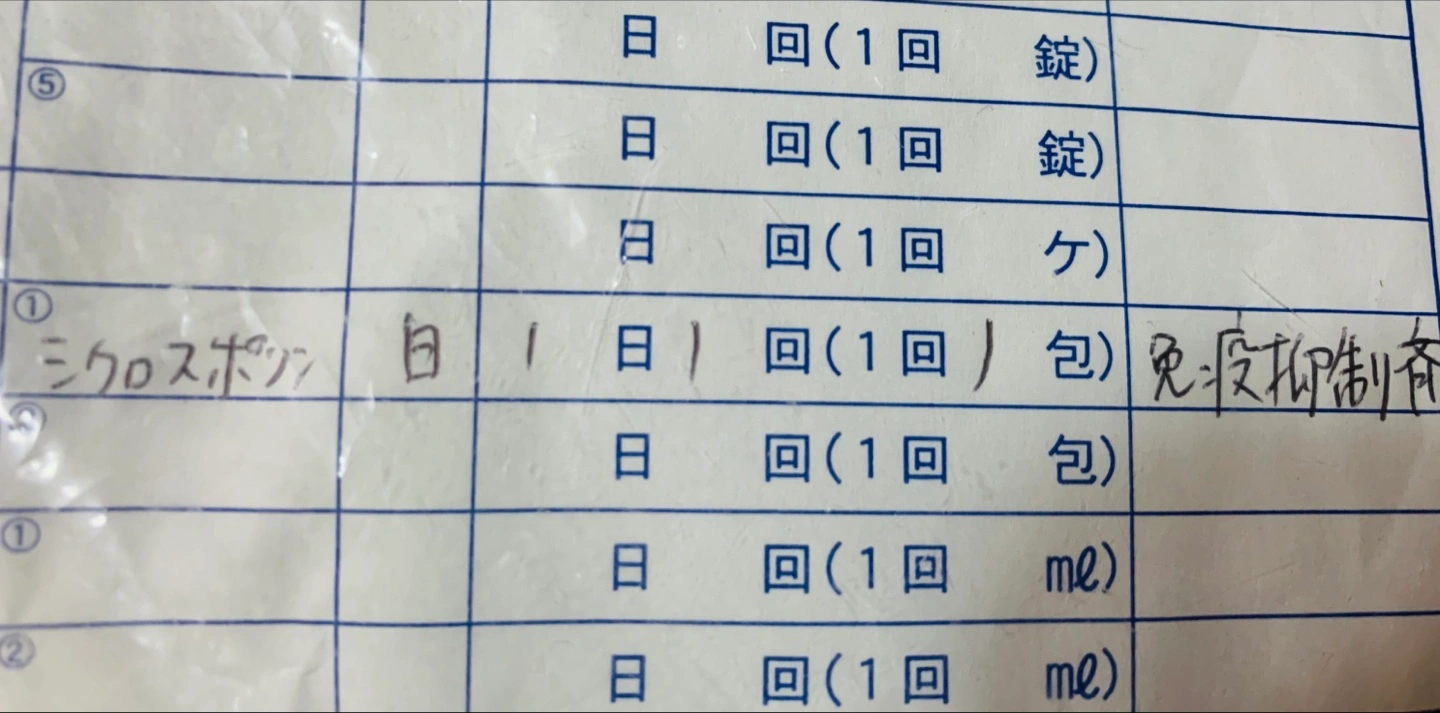 日 回(1回 錠)
⑤ 日 回(1回 錠)
日 回(1回 ケ)
① ミクロスポリン 日 1 日 1 回(1回 1 包) 免疫抑制斉
② 日 回(1回 包)
① 日 回(1回 mℓ)
② 日 回(1回 mℓ)